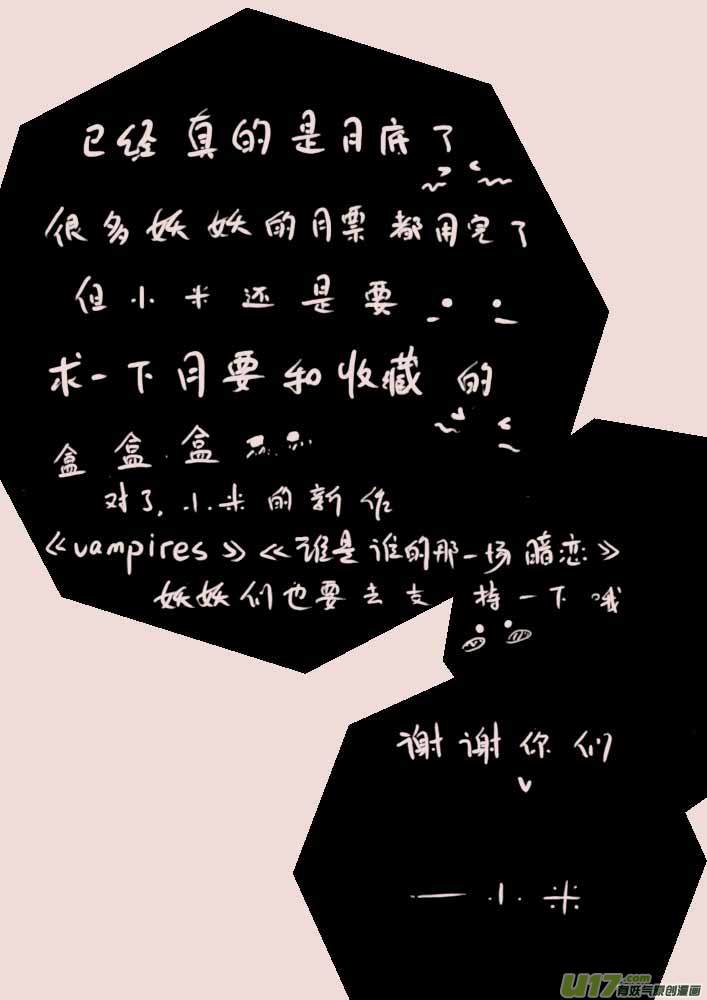 已经真的是月底了
很多妖妖的月票都用完了
但小米还是要
求一下月要和收藏的
盒盒盒
对了,小米的新作
《vampires》《谁是谁的那一场暗恋》
妖妖们也要去支持一下哦
谢谢你们
——小米
U17.com
有妖气原创漫画